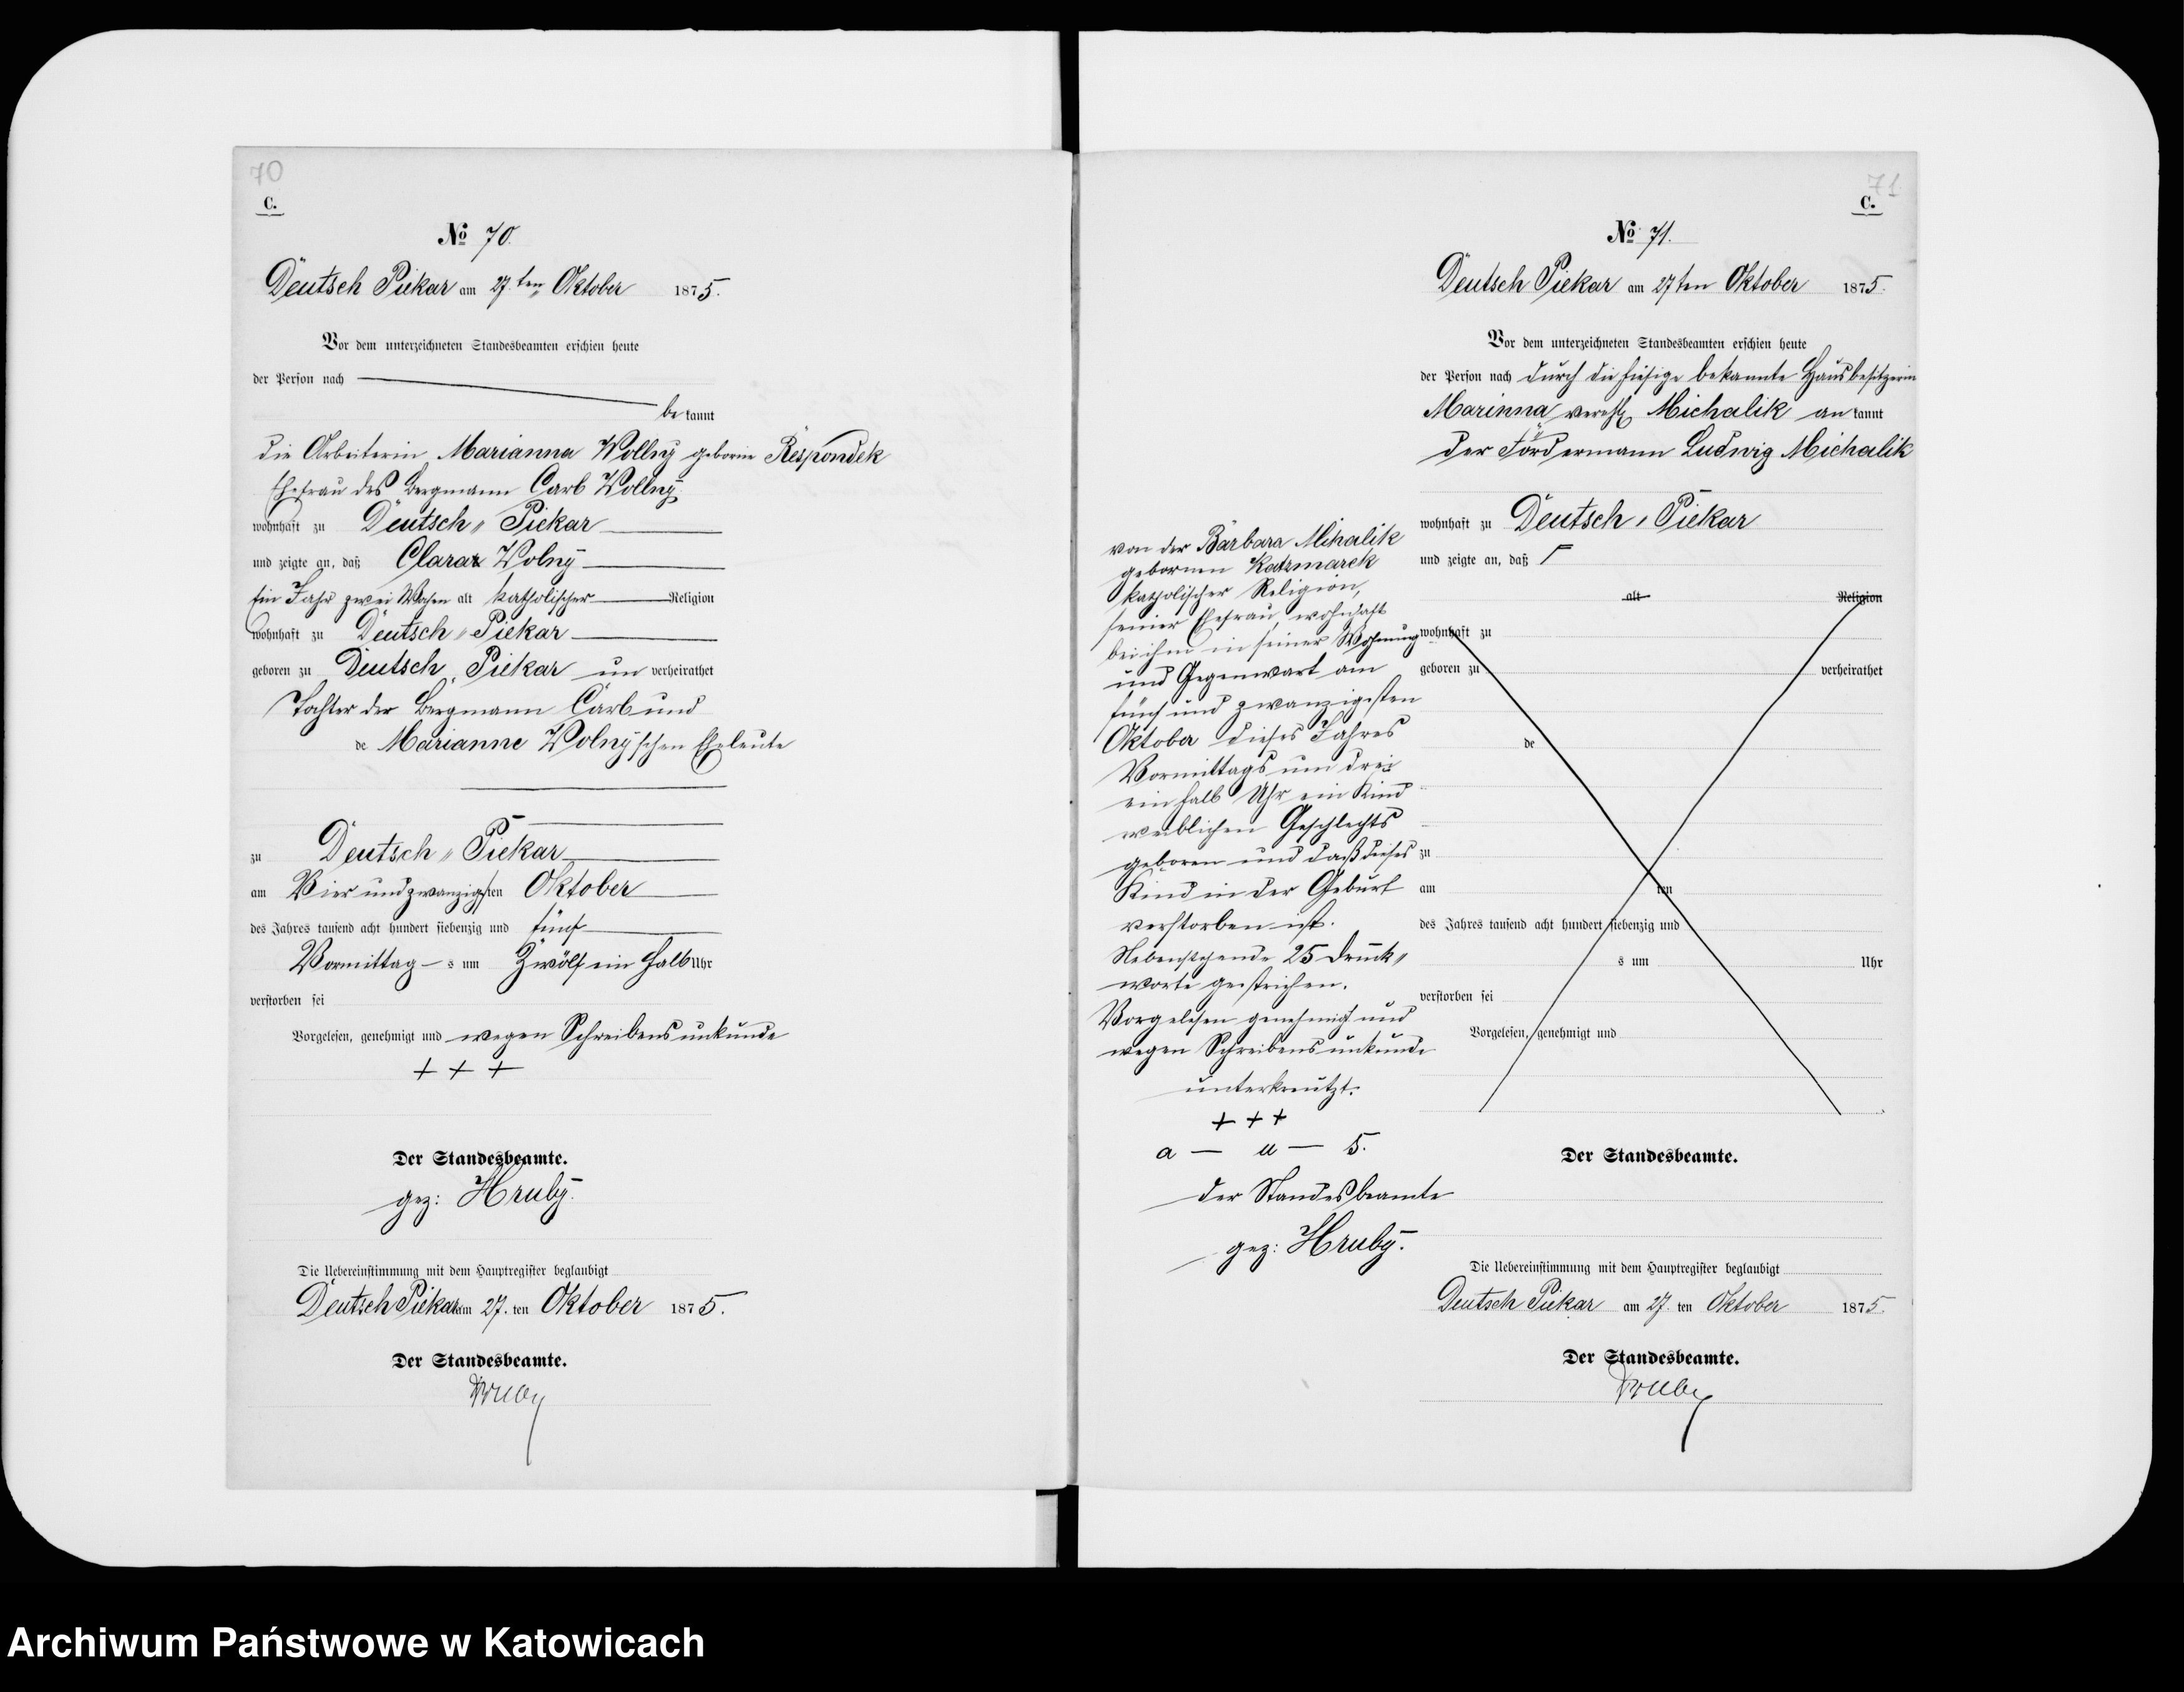 70
C.
No 70.
Deutsch Piekar am 27.ten Oktober 1875.
Vor dem unterzeichneten Standesbeamten erschien heute
der Person nach
be kannt
die Arbeiterin Marianna Wollny geborne Respondek
Ehefrau des Bergmann Carl Wollny
wohnhaft zu Deutsch „ Piekar
und zeigte an, daß Clara Wolny
Ein Jahr zwei Wochen alt katholischer Religion
wohnhaft zu Deutsch „ Piekar
geboren zu Deutsch „ Piekar un verheirathet
Tochter der Bergmann Carl und
de Marianne Wolny'schen Eheleute
zu Deutsch „ Piekar
am Vier und zwanzigsten Oktober
des Jahres tausend acht hundert siebenzig und fünf
Vormittag s um Zwölf ein halb Uhr
verstorben sei
Vorgelesen, genehmigt und wegen Schreibensunkunde
+ + +
Der Standesbeamte.
gez: Hruby.
Die Uebereinstimmung mit dem Hauptregister beglaubigt
Deutsch Piekar am 27. ten Oktober 1875.
Der Standesbeamte.
Hruby
71
C.
No 71.
Deutsch Piekar am 27 ten Oktober 1875.
Vor dem unterzeichneten Standesbeamten erschien heute
der Person nach durch die hiesige bekannte Hausbesitzerin
Marinna verehl Michalik an kannt
der Fördermann Ludwig Michalik
wohnhaft zu Deutsch „ Piekar
und zeigte an, daß
alt Religion
wohnhaft zu
geboren zu verheirathet
de
zu
am ten
des Jahres tausend acht hundert siebenzig und
s um Uhr
verstorben sei
Vorgelesen, genehmigt und
von der Barbara Mihalik
gebornen Katzmarek
katholischer Religion,
seiner Ehefrau, wohnhaft
bei ihm in seiner Wohnung
und Gegenwart am
fünf und zwanzigsten
Oktober dieses Jahres
Vormittags um drei
ein halb Uhr ein Kind
weiblichen Geschlechts
geboren und daß dieses
Kind in der Geburt
verstorben ist.
Nebenstehende 25 Druck„
worte gestrichen.
Vorgelesen genehmigt und
wegen Schreibensunkunde
unterkreutzt.
+ + +
a — u — s.
der Standesbeamte
gez: Hruby.
Der Standesbeamte.
Die Uebereinstimmung mit dem Hauptregister beglaubigt
Deutsch Piekar am 27. ten Oktober 1875.
Der Standesbeamte.
Hruby
Archiwum Państwowe w Katowicach